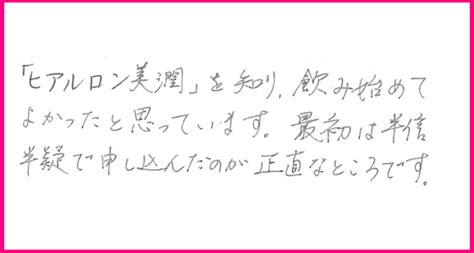 「ヒアルロン美潤」を知り、飲み始めて
よかったと思っています。最初は半信
半疑で申し込んだのが正直なところです。